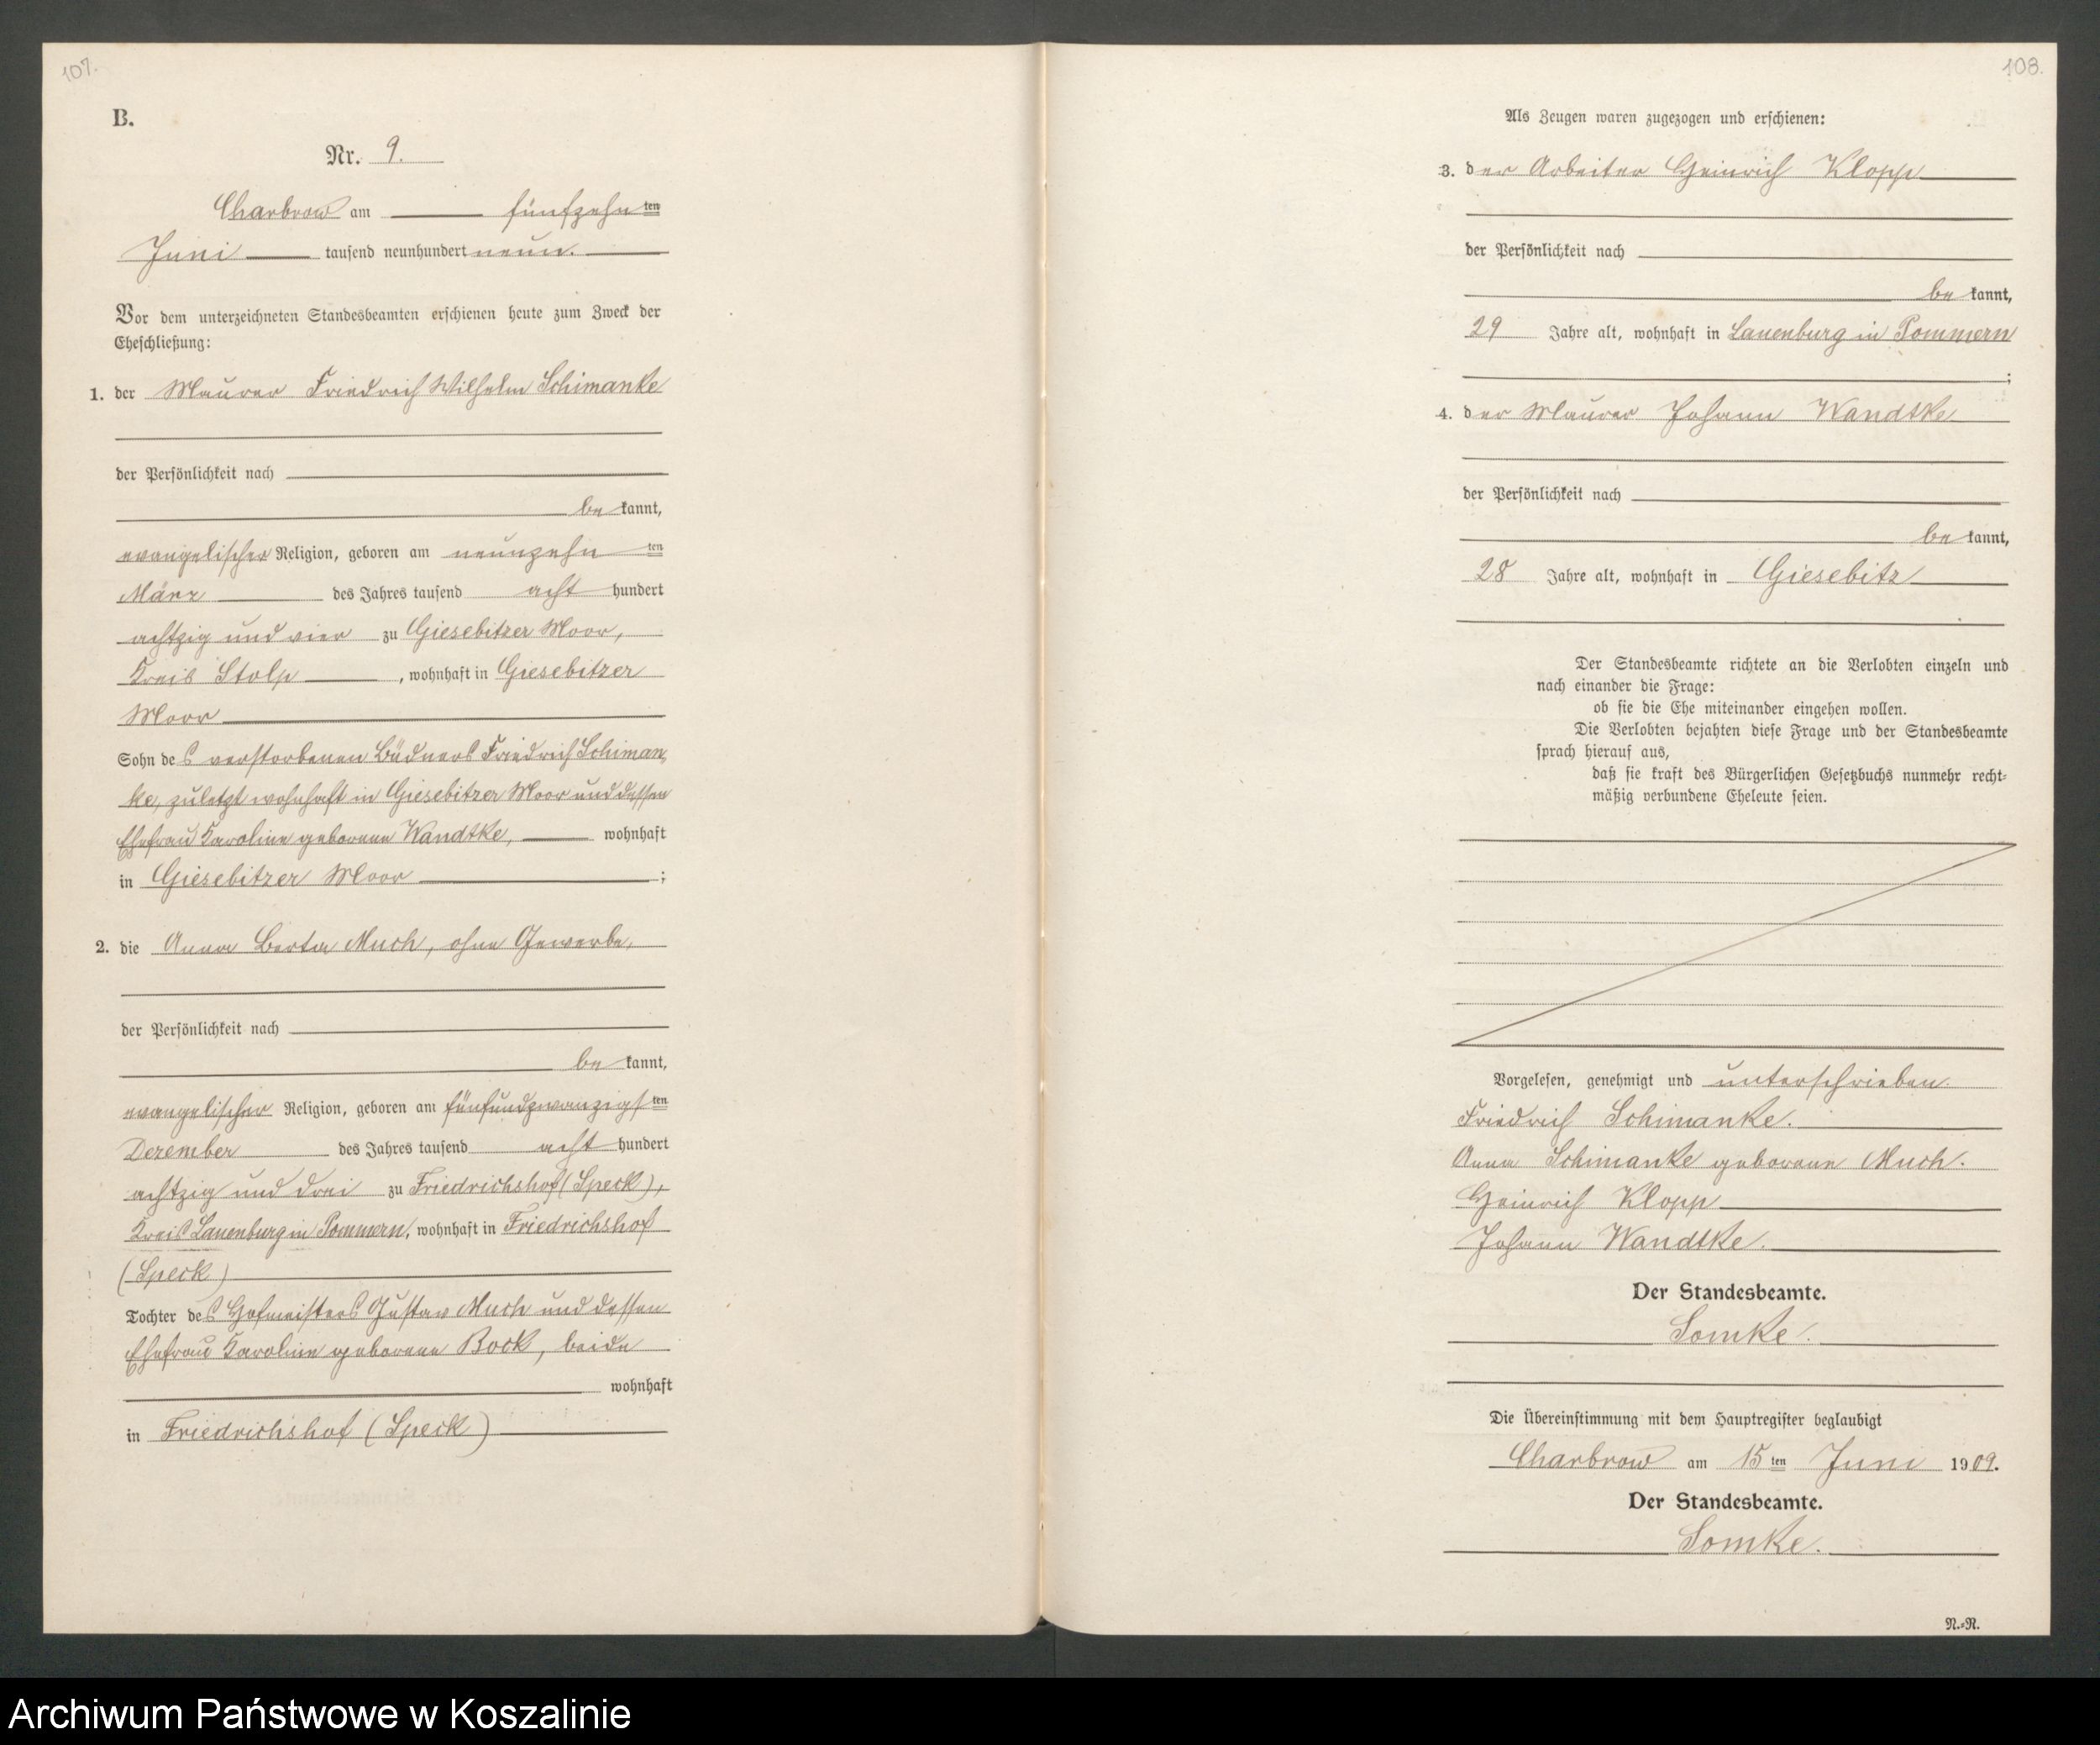 107.
B.
Nr. 9.
Charbrow am fünfzehn ten
Juni tausend neunhundert neun.
Vor dem unterzeichneten Standesbeamten erschienen heute zum Zweck der
Eheschließung:
1. der Maurer Friedrich Wilhelm Schimanke
der Persönlichkeit nach
be kannt,
evangelischer Religion, geboren am neunzehn ten
März des Jahres tausend acht hundert
achtzig und vier zu Giesebitzer Moor,
Kreis Stolp, wohnhaft in Giesebitzer
Moor
Sohn des verstorbenen Büdners Friedrich Schiman-
ke, zuletzt wohnhaft in Giesebitzer Moor und dessen
Ehefrau Karoline geborene Wandtke, wohnhaft
in Giesebitzer Moor ;
2. die Anna Berta Much, ohne Gewerbe,
der Persönlichkeit nach
be kannt,
evangelischer Religion, geboren am fünfundzwanzigsten
Dezember des Jahres tausend acht hundert
achtzig und drei zu Friedrichshof (Speck),
Kreis Lauenburg in Pommern, wohnhaft in Friedrichshof
(Speck)
Tochter des Hofmeisters Gustav Much und dessen
Ehefrau Karoline geborene Bock, beide
wohnhaft
in Friedrichshof (Speck)
108.
Als Zeugen waren zugezogen und erschienen:
3. der Arbeiter Heinrich Klopp
der Persönlichkeit nach
be kannt,
29 Jahre alt, wohnhaft in Lauenburg in Pommern
;
4. der Maurer Johann Wandtke
der Persönlichkeit nach
be kannt,
28 Jahre alt, wohnhaft in Giesebitz
Der Standesbeamte richtete an die Verlobten einzeln und
nach einander die Frage:
ob sie die Ehe miteinander eingehen wollen.
Die Verlobten bejahten diese Frage und der Standesbeamte
sprach hierauf aus,
daß sie kraft des Bürgerlichen Gesetzbuchs nunmehr recht-
mäßig verbundene Eheleute seien.
Vorgelesen, genehmigt und unterschrieben.
Friedrich Schimanke.
Anna Schimanke geborene Much.
Heinrich Klopp
Johann Wandtke.
Der Standesbeamte.
Somke.
Die Übereinstimmung mit dem Hauptregister beglaubigt
Charbrow am 15 ten Juni 1909.
Der Standesbeamte.
Somke.
N.-R.
Archiwum Państwowe w Koszalinie